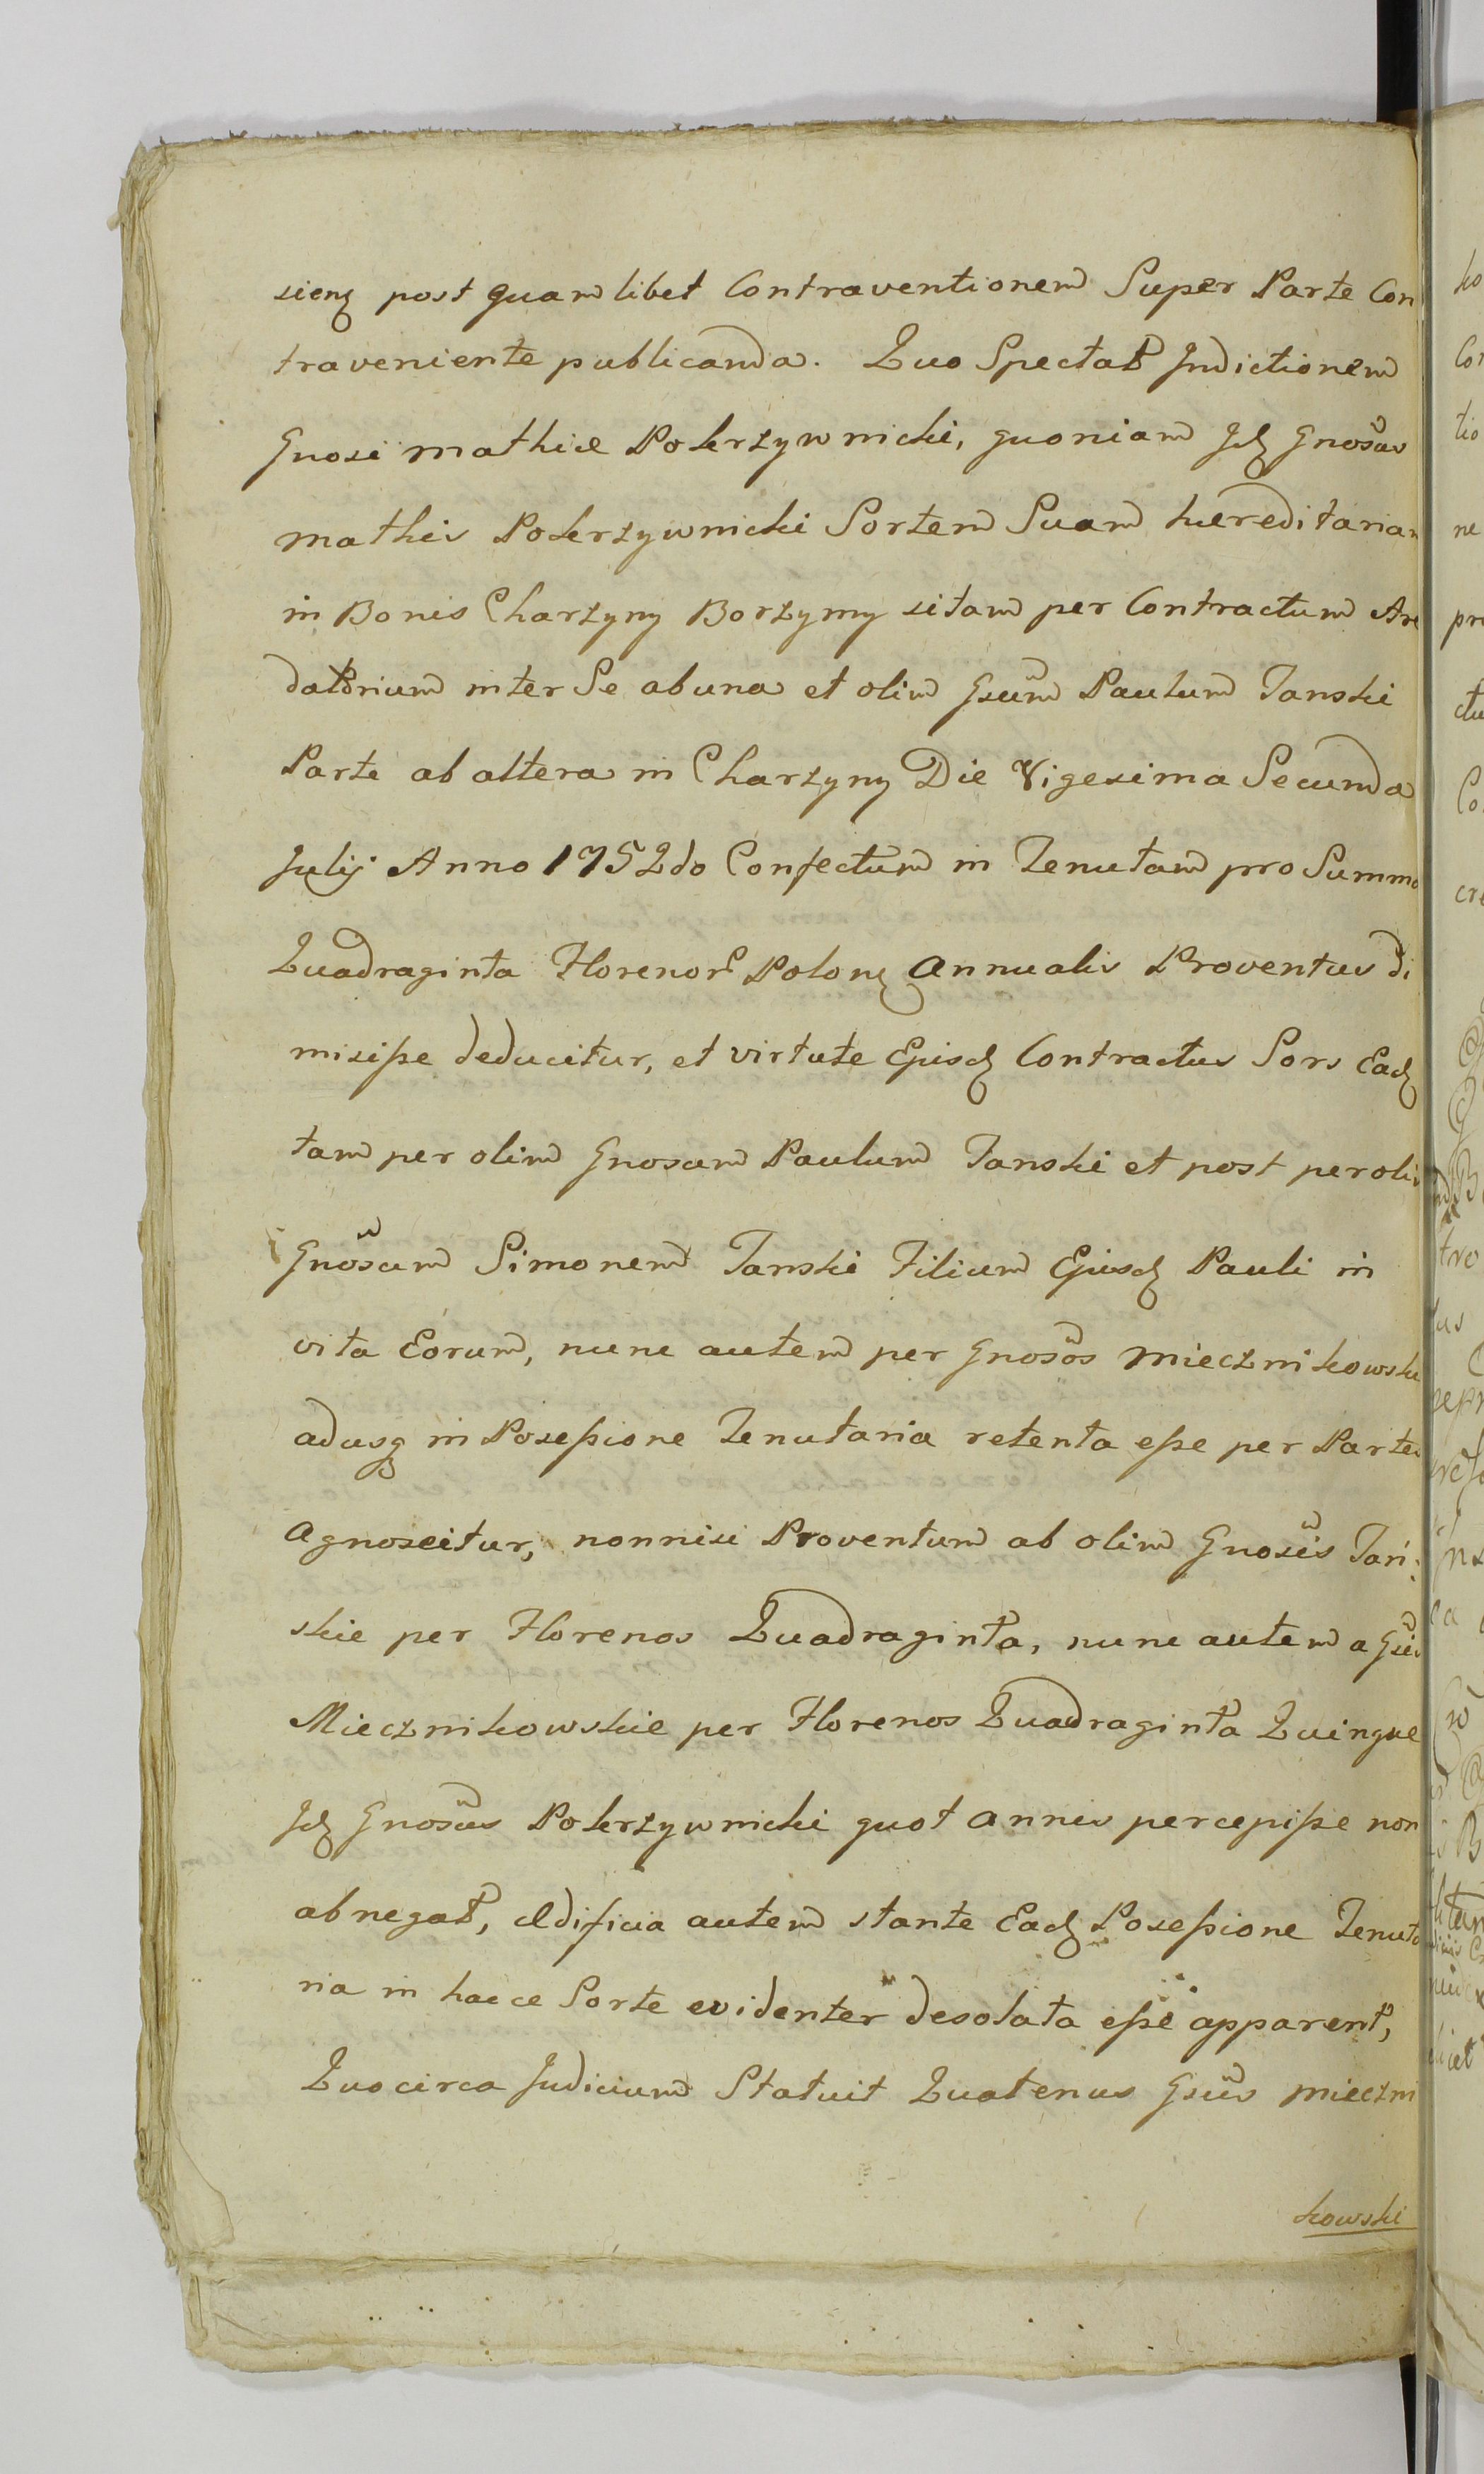 sienꝫ post quam libet Contraventionem Super Parte Con
traveniente publicanda. Quo Spectat Indictionem
Gnosi Mathiæ Pokrzywnicki, quoniam Id Gnosus
Mathis Pokrzywnicki Sortem Suam hæreditariam
in Bonis Charzyny Borzymy sitam per Contractum Are
datorium inter Se ab una et olim Gsum Paulum Tanski
Parte ab altera in Charzyny Die Vigesima Secunda
Julij Anno 1752do Confectum in Tenutam pro Summa
Quadraginta Florenor Polonꝫ Annualis Proventus di
misisse deducitur, et virtute Ejusd Contractus Sors Ead
tam per olim Gnosum Paulum Tanski et post per olim
Gnosum Simonem Tanski Filium Ejusd Pauli in
vita Eorum, nunc autem per Gnosos Miecznikowskie
adusq in Posessione Tenutaria retenta esse per Partes
Agnoscitur, nonnisi Proventum ab olim Gnosis Tań:
skie per Florenos Quadraginta, nunc autem a Gsis
Miecznikowskie per Florenos Quadraginta Quinque
Id Gnosus Pokrzywnicki quot annis percepisse non
abnegat, Ædificia autem stante Ead Posessione Tenuta
ria in haece Sorte evidenter desolata esse apparent,
Quocirca Judicium Statuit Quatenus Gsus Mieczni
kowski